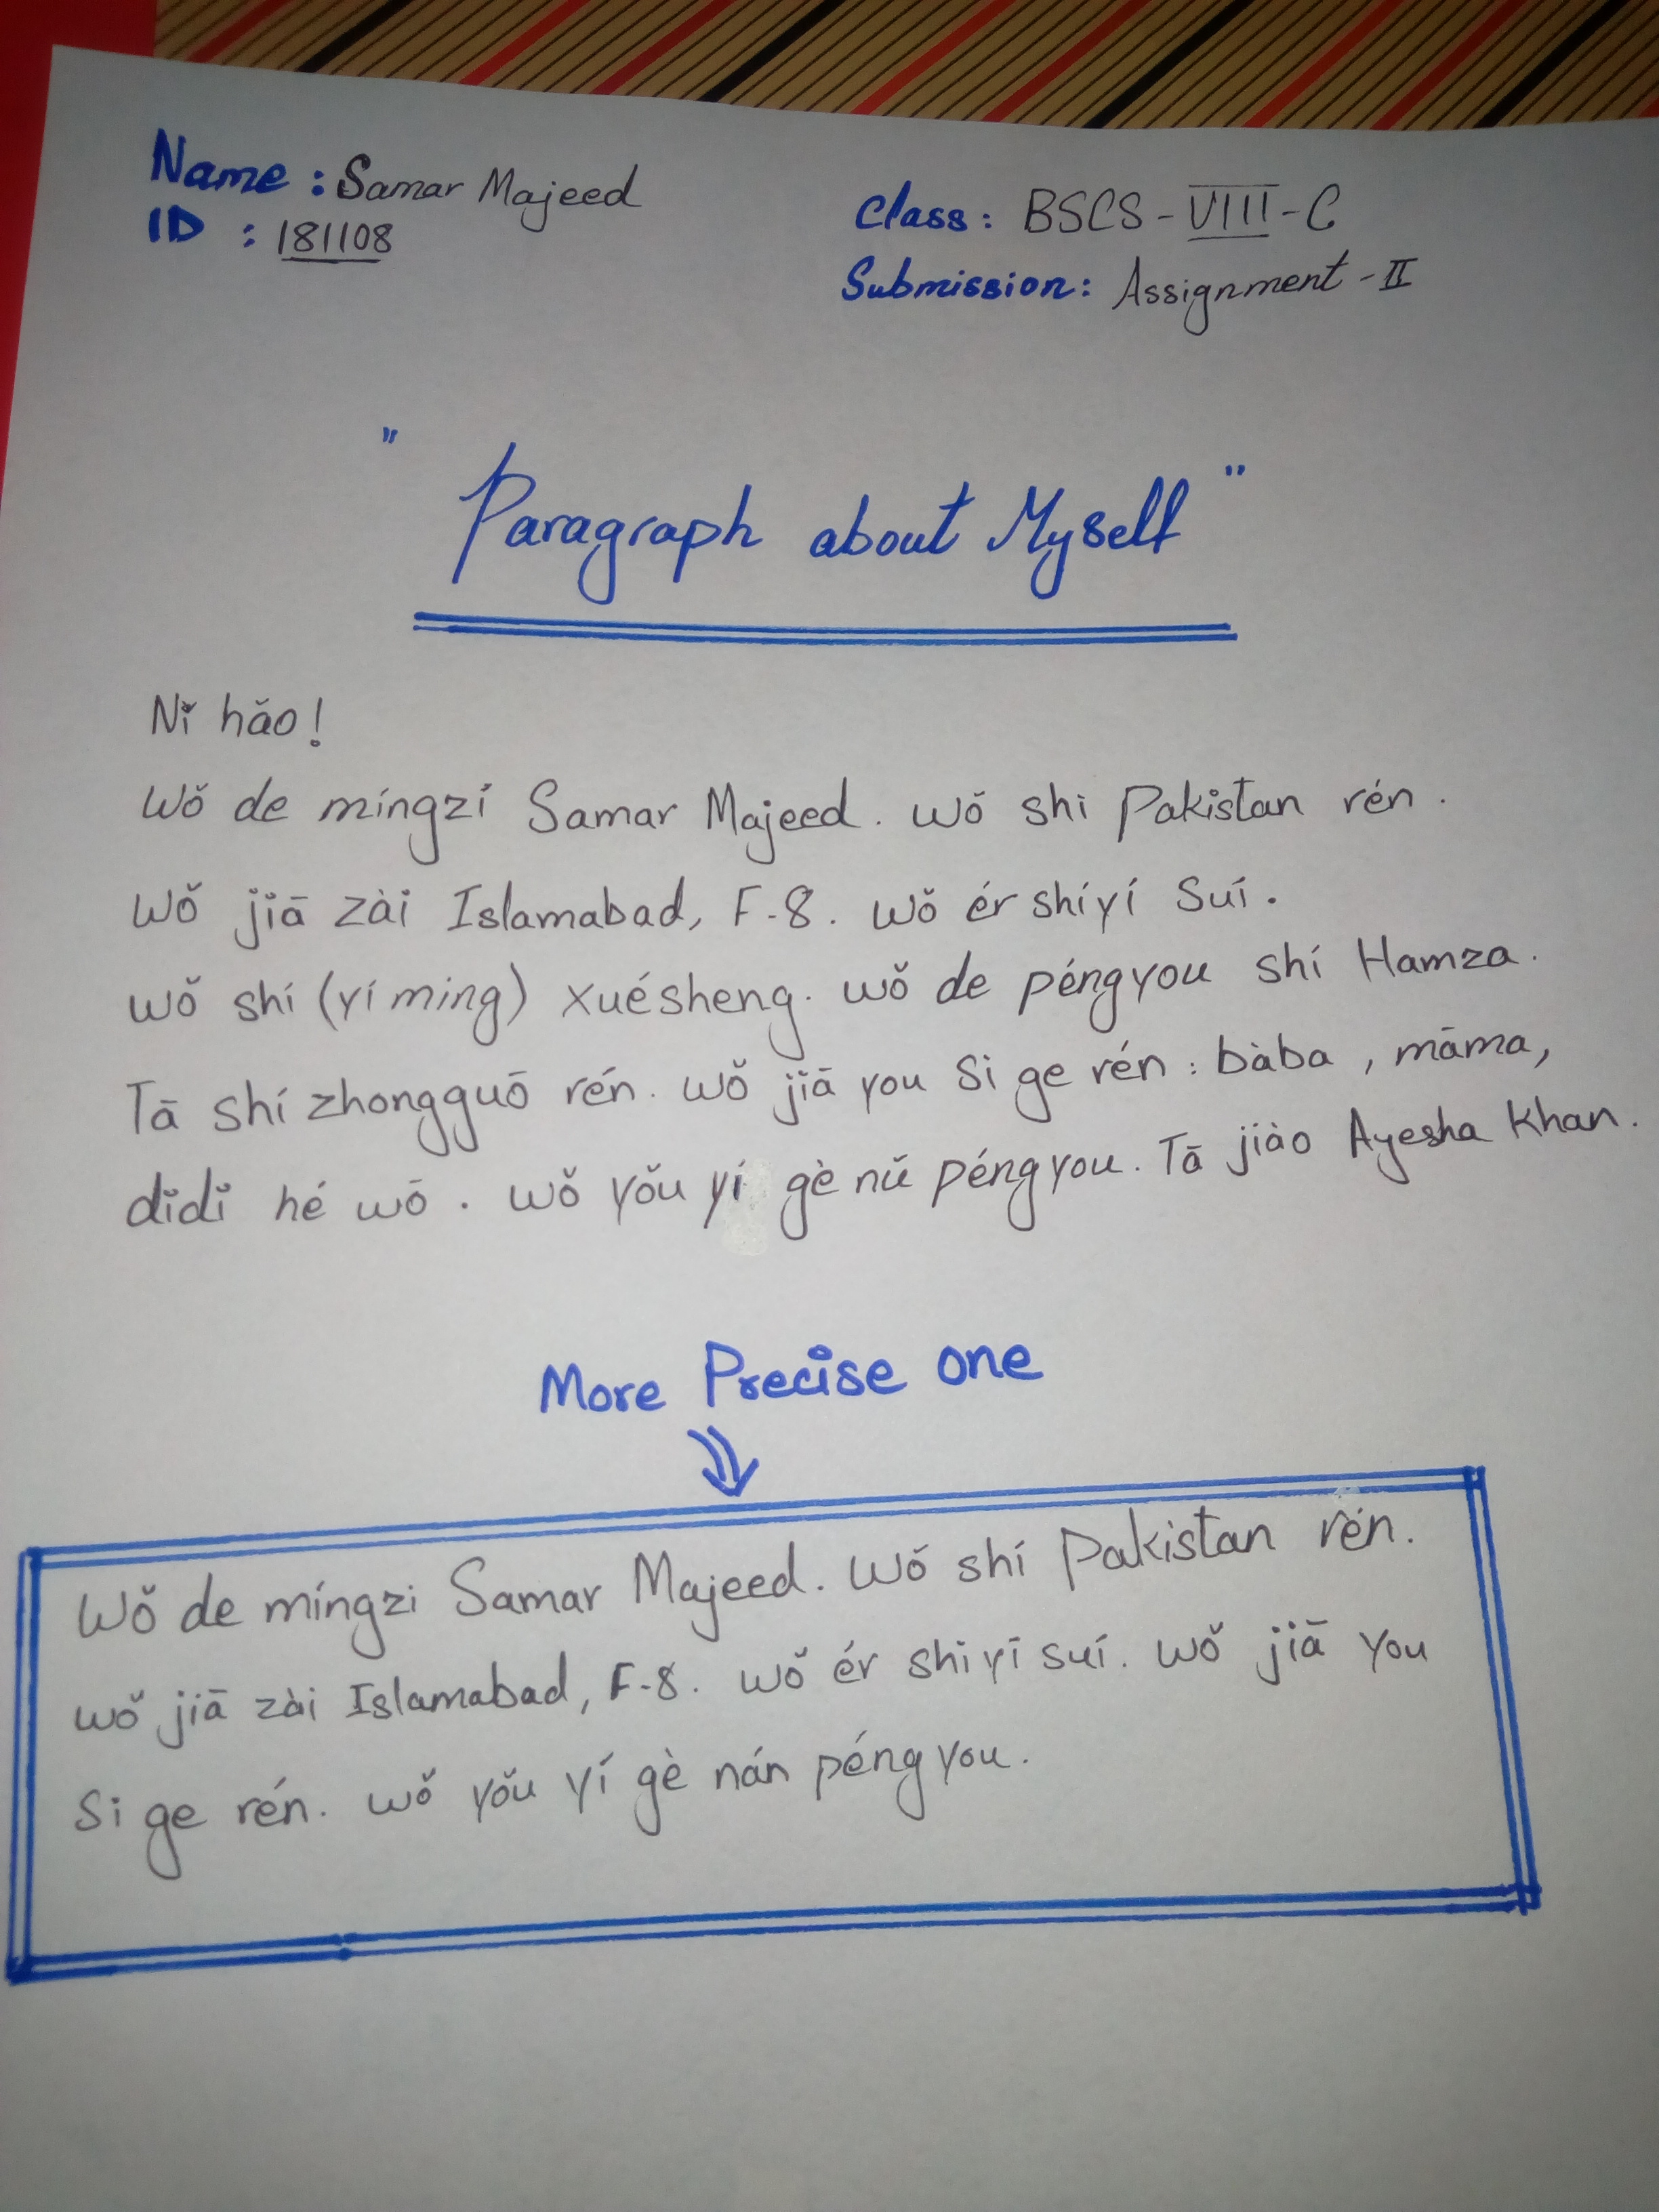 Name : Samar Majeed
ID : 181108
Class: BSCS-VIII-C
Submission: Assignment-II
"Paragraph about Myself"
Nǐ hǎo!
Wǒ de míngzí Samar Majeed. Wǒ shi Pakistan rén.
Wǒ jiā zài Islamabad, F-8. Wǒ ér shíyí Suí.
Wǒ shí (yí ming) xuésheng. Wǒ de péngyou shí Hamza.
Tā shí zhongguō rén. Wǒ jiā you Si ge rén : bàba , māma,
didi hé wō . Wǒ yǒu yí gè nǔ péngyou. Tā jiào Ayesha Khan.
More Precise one
Wǒ de míngzi Samar Majeed. Wǒ shí Pakistan rén.
Wǒ jiā zài Islamabad, F-8. Wǒ ér shiyī suí. Wǒ jiā you
Si ge rén. Wǒ yǒu yí gè nán péngyou.